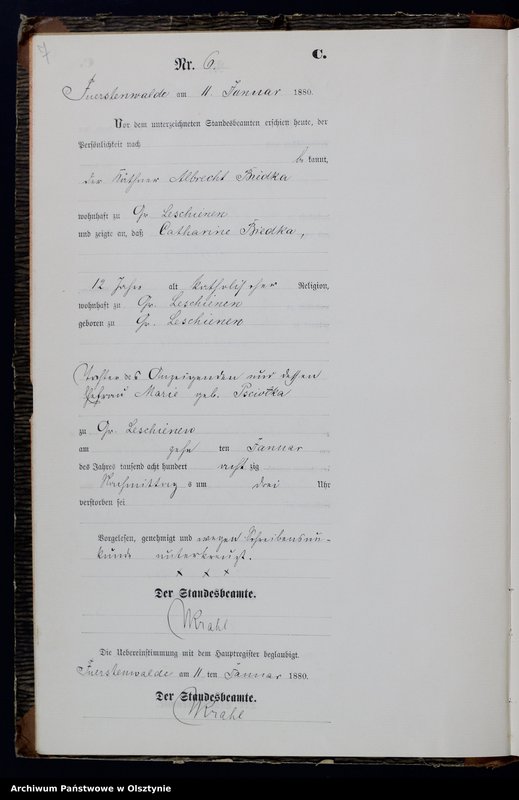 7
C.
Nr. 6.
Fuerstenwalde am 11. Januar 1880.
Vor dem unterzeichneten Standesbeamten erschien heute, der
Persönlichkeit nach
be kannt,
der Käthner Albrecht Biedka
wohnhaft zu Gr. Leschienen
und zeigte an, daß Catharine Biedka,
12 Jahre alt katholischer Religion,
wohnhaft zu Gr. Leschienen
geboren zu Gr. Leschienen
Tochter des Anzeigenden und dessen
Ehefrau Marie geb.
zu Gr. Leschienen
am zehn ten Januar
des Jahres tausend acht hundert acht zig
Nachmittag s um drei Uhr
verstorben sei
Vorgelesen, genehmigt und wegen Schreibensun-
kunde unterkreuzt.
x x x
Der Standesbeamte.
Krahl
Die Uebereinstimmung mit dem Hauptregister beglaubigt.
Fuerstenwalde am 11. ten Januar 1880.
Der Standesbeamte.
Krahl
Archiwum Państwowe w Olsztynie